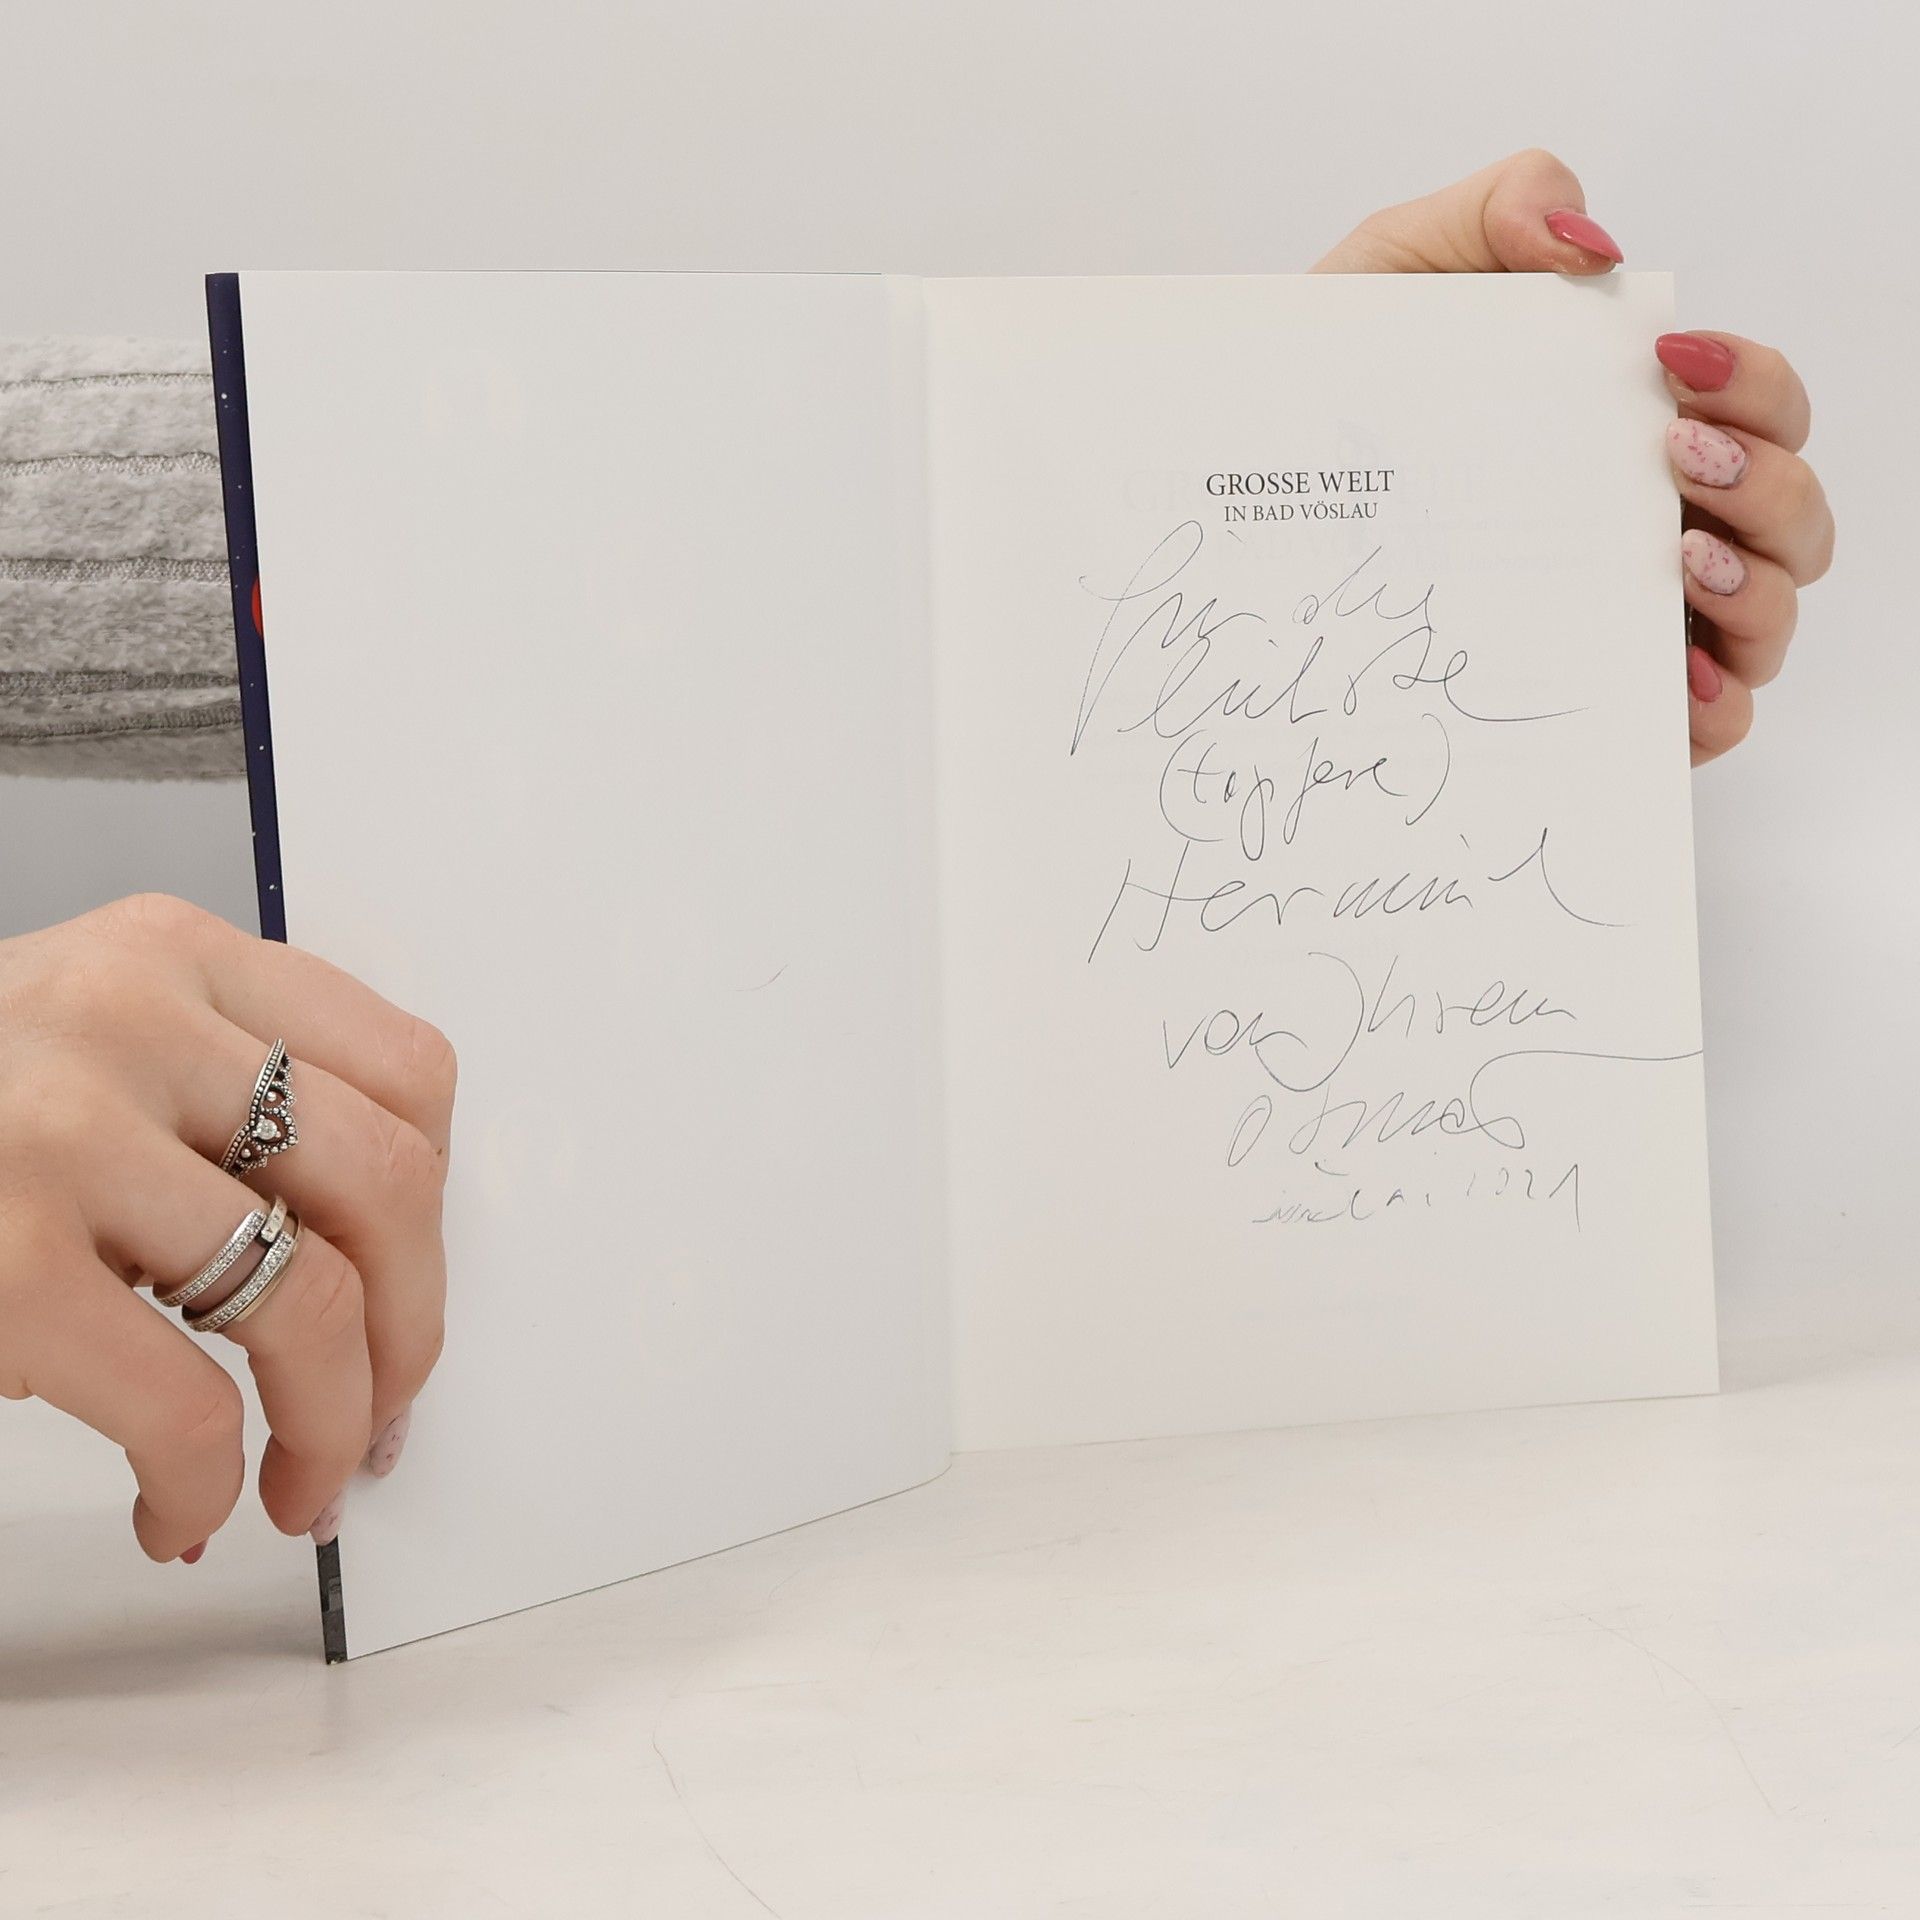 GROSSE WELT
IN BAD VÖSLAU
Für die
liebste
(tapfere)
Hermine
von Ihrem
Otmar